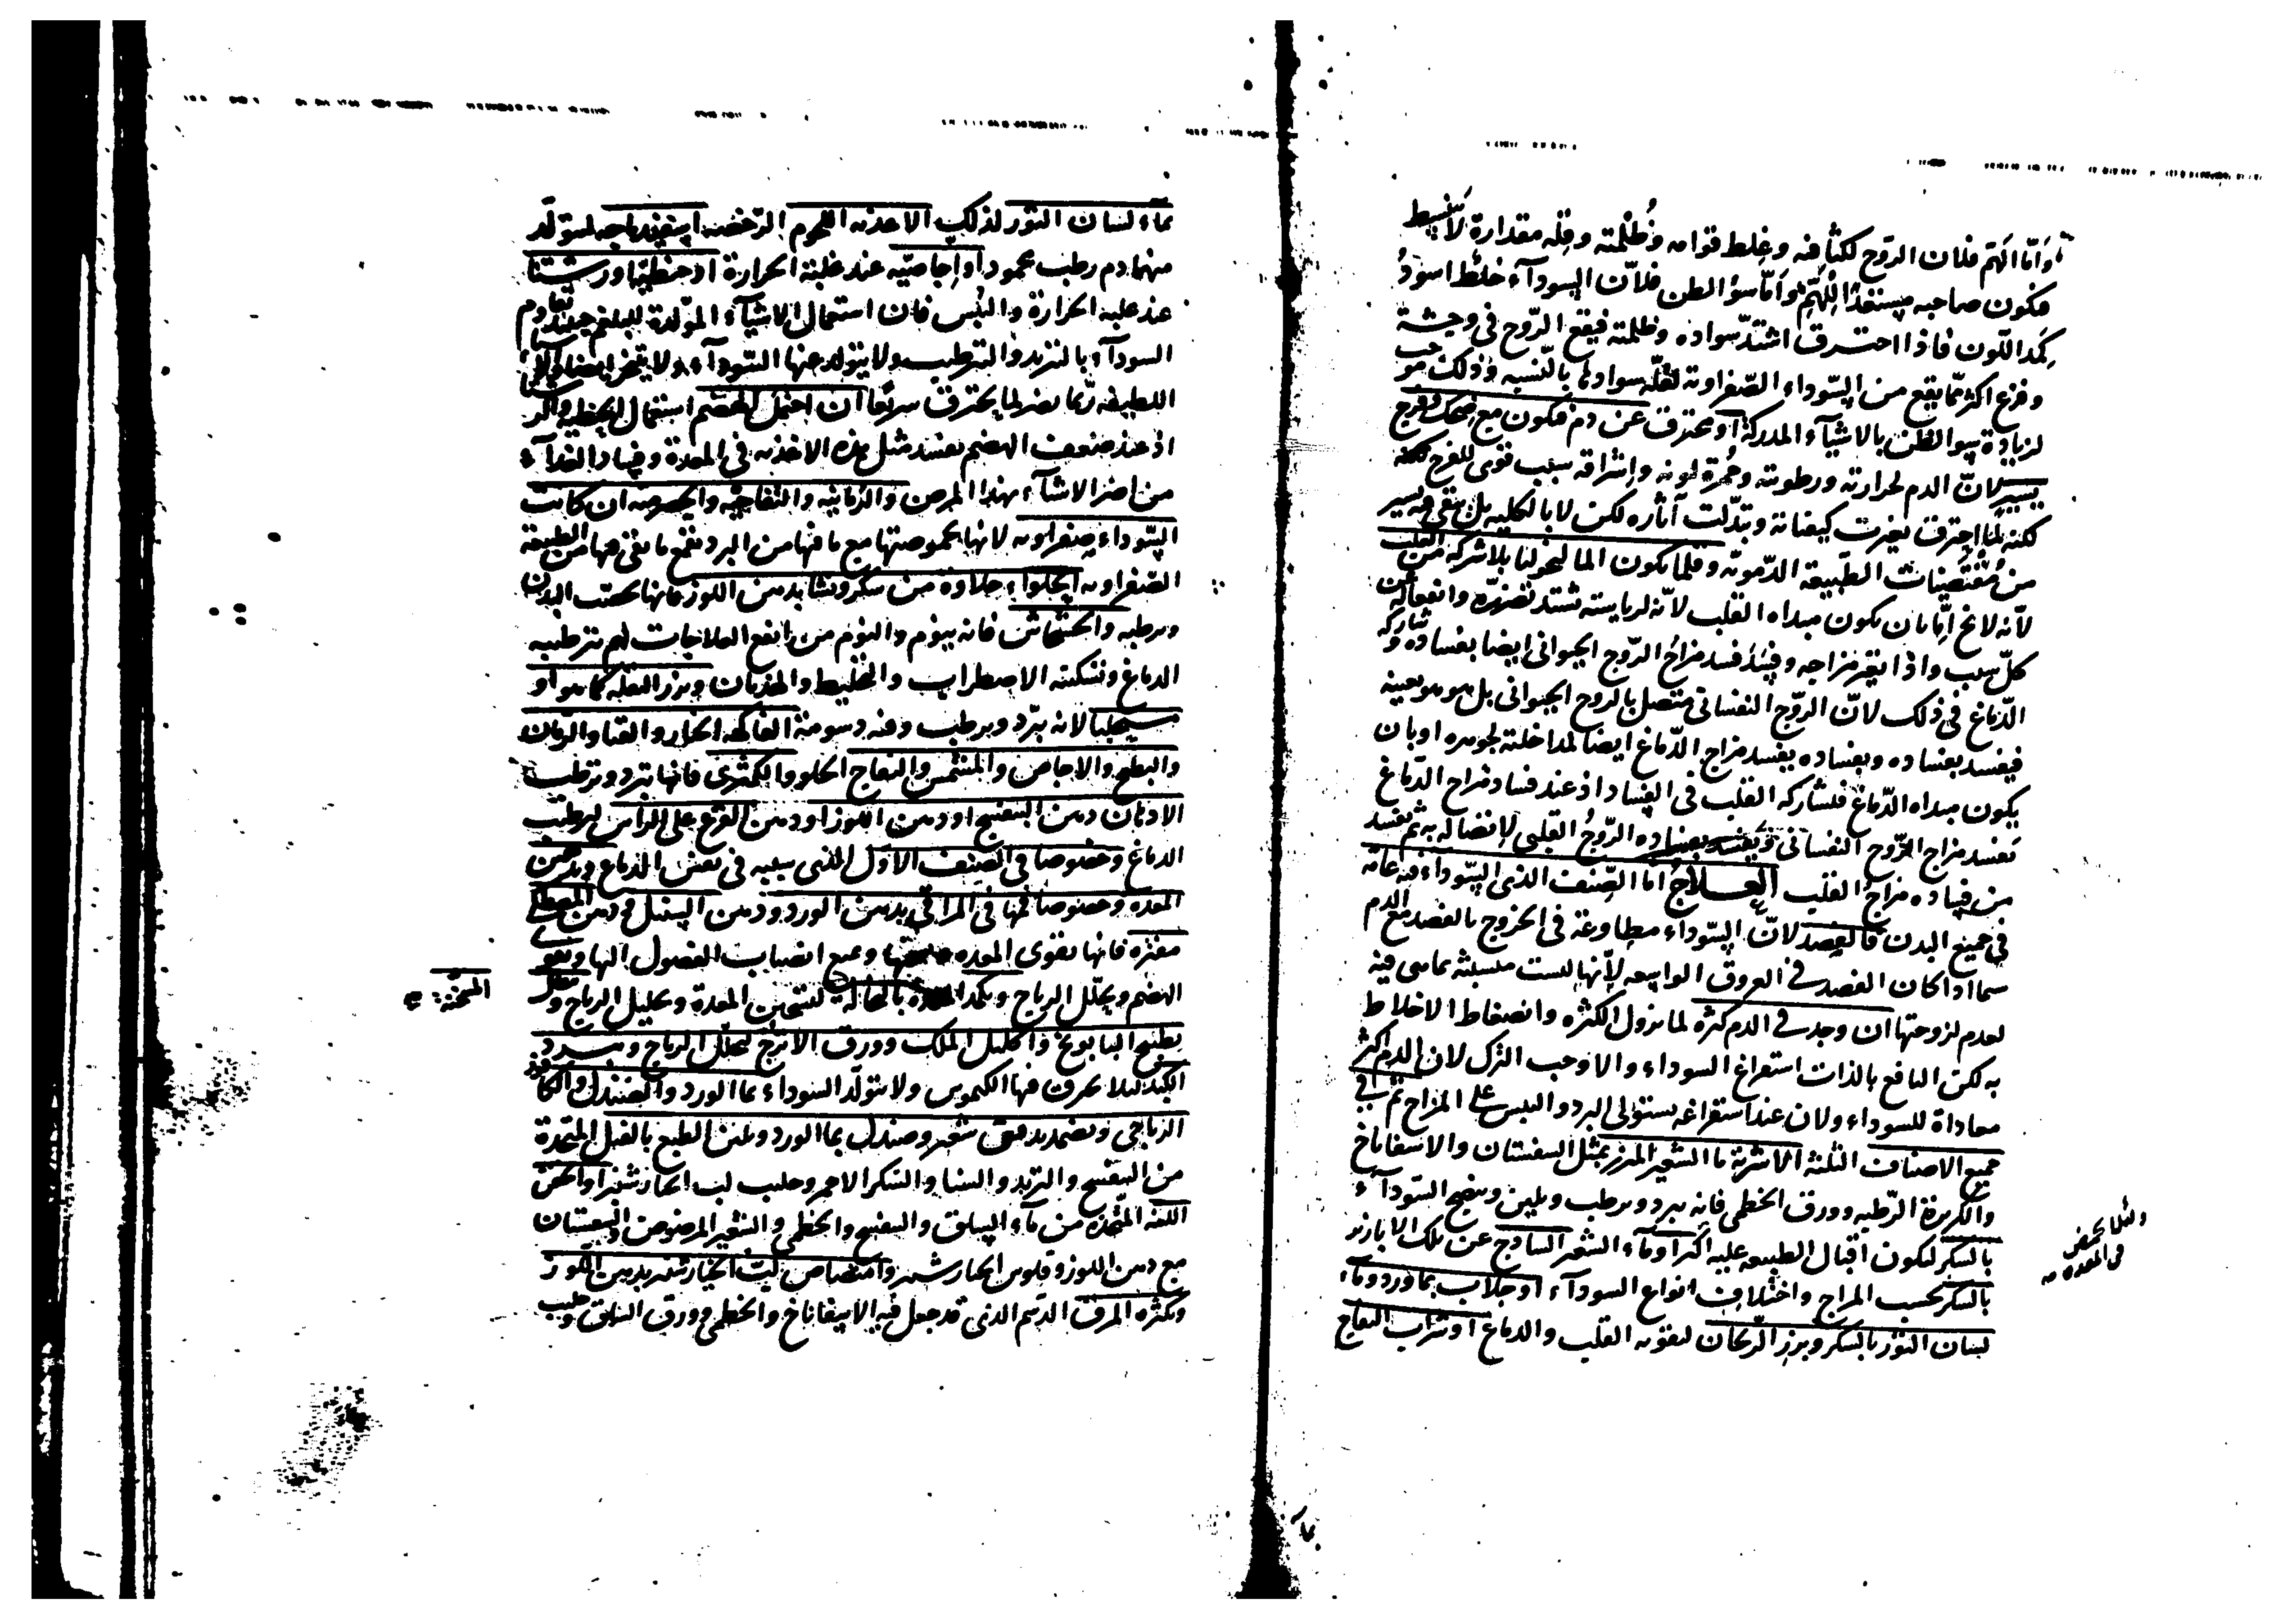 وأما الهم فلان الروح لكثافته وغلظ قوامه وظلمته وقلة مقداره لا ينبسط
فيكون صاحبه مستعدا للهم وأما سوء الظن فلأن السوداء خلط اسود
كمد اللون فاذا احترق اشتد سواده وظلمته فيقع الروح في وحشة
وفزع اكثر مما يقع من السوداء الصفراوية لقلة سوادها بالنسبة وذلك موجب
لزيادة سوء الظن بالاشياء المدركة او محترق عن دم فيكون مع ضحك وفرح
يسير لان الدم لحرارته ورطوبته وحمرة لونه واشراقه سبب قوى للفرح لكنه
لكنه لما احترق تغيرت كيفياته وتبدلت آثاره لكن لا بالكلية بل بقى فيه يسير
من مقتضيات الطبيعة الدموية وقلما يكون الماليخوليا بلا شركة من القلب
لأنه لا يخ اما ان يكون مبداه القلب لأنه لرياسته يشتد تضرره وانفعاله عن
كل سبب واذا تغير مزاجه وفسد فسد مزاج الروح الحيوانى ايضا بفساده وشاركه
الدماغ في ذلك لان الروح النفسانى متصل بالروح الحيوانى بل هو هو بعينه
فيفسد بفساده وبفساده يفسد مزاج الدماغ ايضا لمداخلته لجوهره او بان
يكون مبداه الدماغ فيشاركه القلب في الفساد اذ عند فساد مزاج الدماغ
يفسد مزاج الروح النفسانى ويفسد بفساده الروح القلبى لاتصاله به ثم يفسد
من فساده مزاج القلب العلاج اما الصنف الذى السوداء فيه عامة
في جميع البدن فالفصد لان السوداء مطاوعة في الخروج بالفصد مع الدم
سيما اذا كان الفصد في العروق الواسعة لأنها ليست متشبثة بما هى فيه
لعدم لزوجتها ان وجد في الدم كثرة لما يزول الكثرة وانضغاط الاخلاط
به لكن النافع بالذات استفراغ السوداء والا وجب الترك لان الدم اكثر
معاداة للسوداء ولان عند استفراغه يستولى البرد واليبس على المزاج ثم في
جميع الاصناف الثلثة الاشربة ماء الشعير المبزر بمثل السفستان والاسفاناخ
والكزبرة الرطبة وورق الخطمى فانه يبرد ويرطب ويلين وينضج السوداء
بالسكر ليكون اقبال الطبيعة عليه اكثر او ماء الشعير الساذج عن تلك الابازير
ولئلا يحمض
في المعدة
بالسكر بحسب المزاج واختلاف انواع السوداء او جلاب بماورد وماء
لسان الثور بالسكر وبزر الريحان لتقوية القلب والدماغ او شراب التفاح
بما
بماء لسان الثور لذلك الاغذية اللحوم الرخصة اسفيدباجة ليتولد
منها دم رطب محمود او اجاصية عند غلبة الحرارة او حنطية او رشتا
عند غلبة الحرارة واليبس فان استعمال الاشياء المولدة للبلغم حينئذ تقاوم
السوداء بالتبريد والترطيب ولا يتولد عنها السوداء ولا
اللطيفة ربما تضر لما يحترق سريعا ان احتمل الهضم استعمال الحنطية
اذ عند ضعف الهضم يفسد مثل هذه الاغذية في المعدة وفساد الغذاء
من اضر الاشياء بهذا المرض والرمانية والتفاحية والحصرمية ان كانت
السوداء صفراوية لانها بحموضتها مع ما فيها من البرد يقمع ما بقى فيها من الطبيعة
الصفراوية الحلواء حلاوة من سكر ونشا بدهن اللوز فانها تخصب البدن
ويرطبه والخشخاش فانه ينوم والنوم من انفع العلاجات لهم لترطيبه
الدماغ وتسكينه الاضطراب والتخليط والهذيان وبزر البقلة كما هو او
مستحلبا لانه يبرد ويرطب وفيه دسومة الفاكهة الخيار والقثا والرمان
والبطيخ والاجاص والمشمش والتفاح الحلو والكمثرى فانها تبرد وترطب
الادهان دهن البنفسج او دهن اللوز او دهن القرع على الراس لترطيب
الدماغ وخصوصا في الصنف الاول الذى سببه في نفس الدماغ ودهن
المعدة وخصوصا فمها في المراقى بدهن الورد ودهن السنبل ودهن المصطكى
مفترة فانها تقوى المعدة ويمنع انصباب الفضول اليها وتقوى
الهضم ويحلل الرياح ويكمد المعدة بالنخالة لتسخين المعدة وتحليل الرياح وتنطل
المسخنة
بطبيخ البابونج واكليل الملك وورق الاترج لتحلل الرياح ويبرد
الكبد لئلا يحرق فيها الكيموس ولا يتولد السوداء بماء الورد والصندل والكافور
الرياحى ويضمد بدقيق شعير وصندل بماء الورد ويلين الطبع بالفتل المتخذة
من البنفسج والتربد والسنا والسكر الاحمر وحليب لب الخيارشنبر او الحقن
اللينة المتخذة من ماء السلق والبنفسج والخطمى والشعير المرضوض والسفستان
مع دهن اللوز وفلوس الخيارشنبر وامتصاص لب الخيارشنبر بدهن اللوز
وبكثرة المرق الدسم الذى قد جعل فيه الاسفاناخ والخطمى وورق السلق